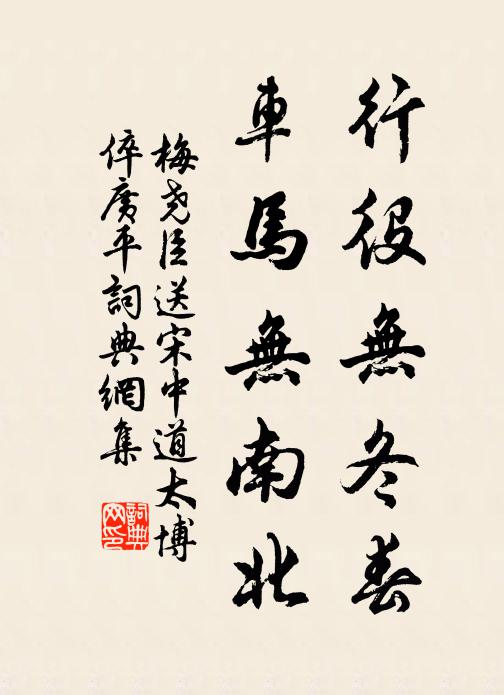 行役無冬春
車馬無南北
梅堯臣送宋中道太博
倅廣平詞典網集
詞典
网印